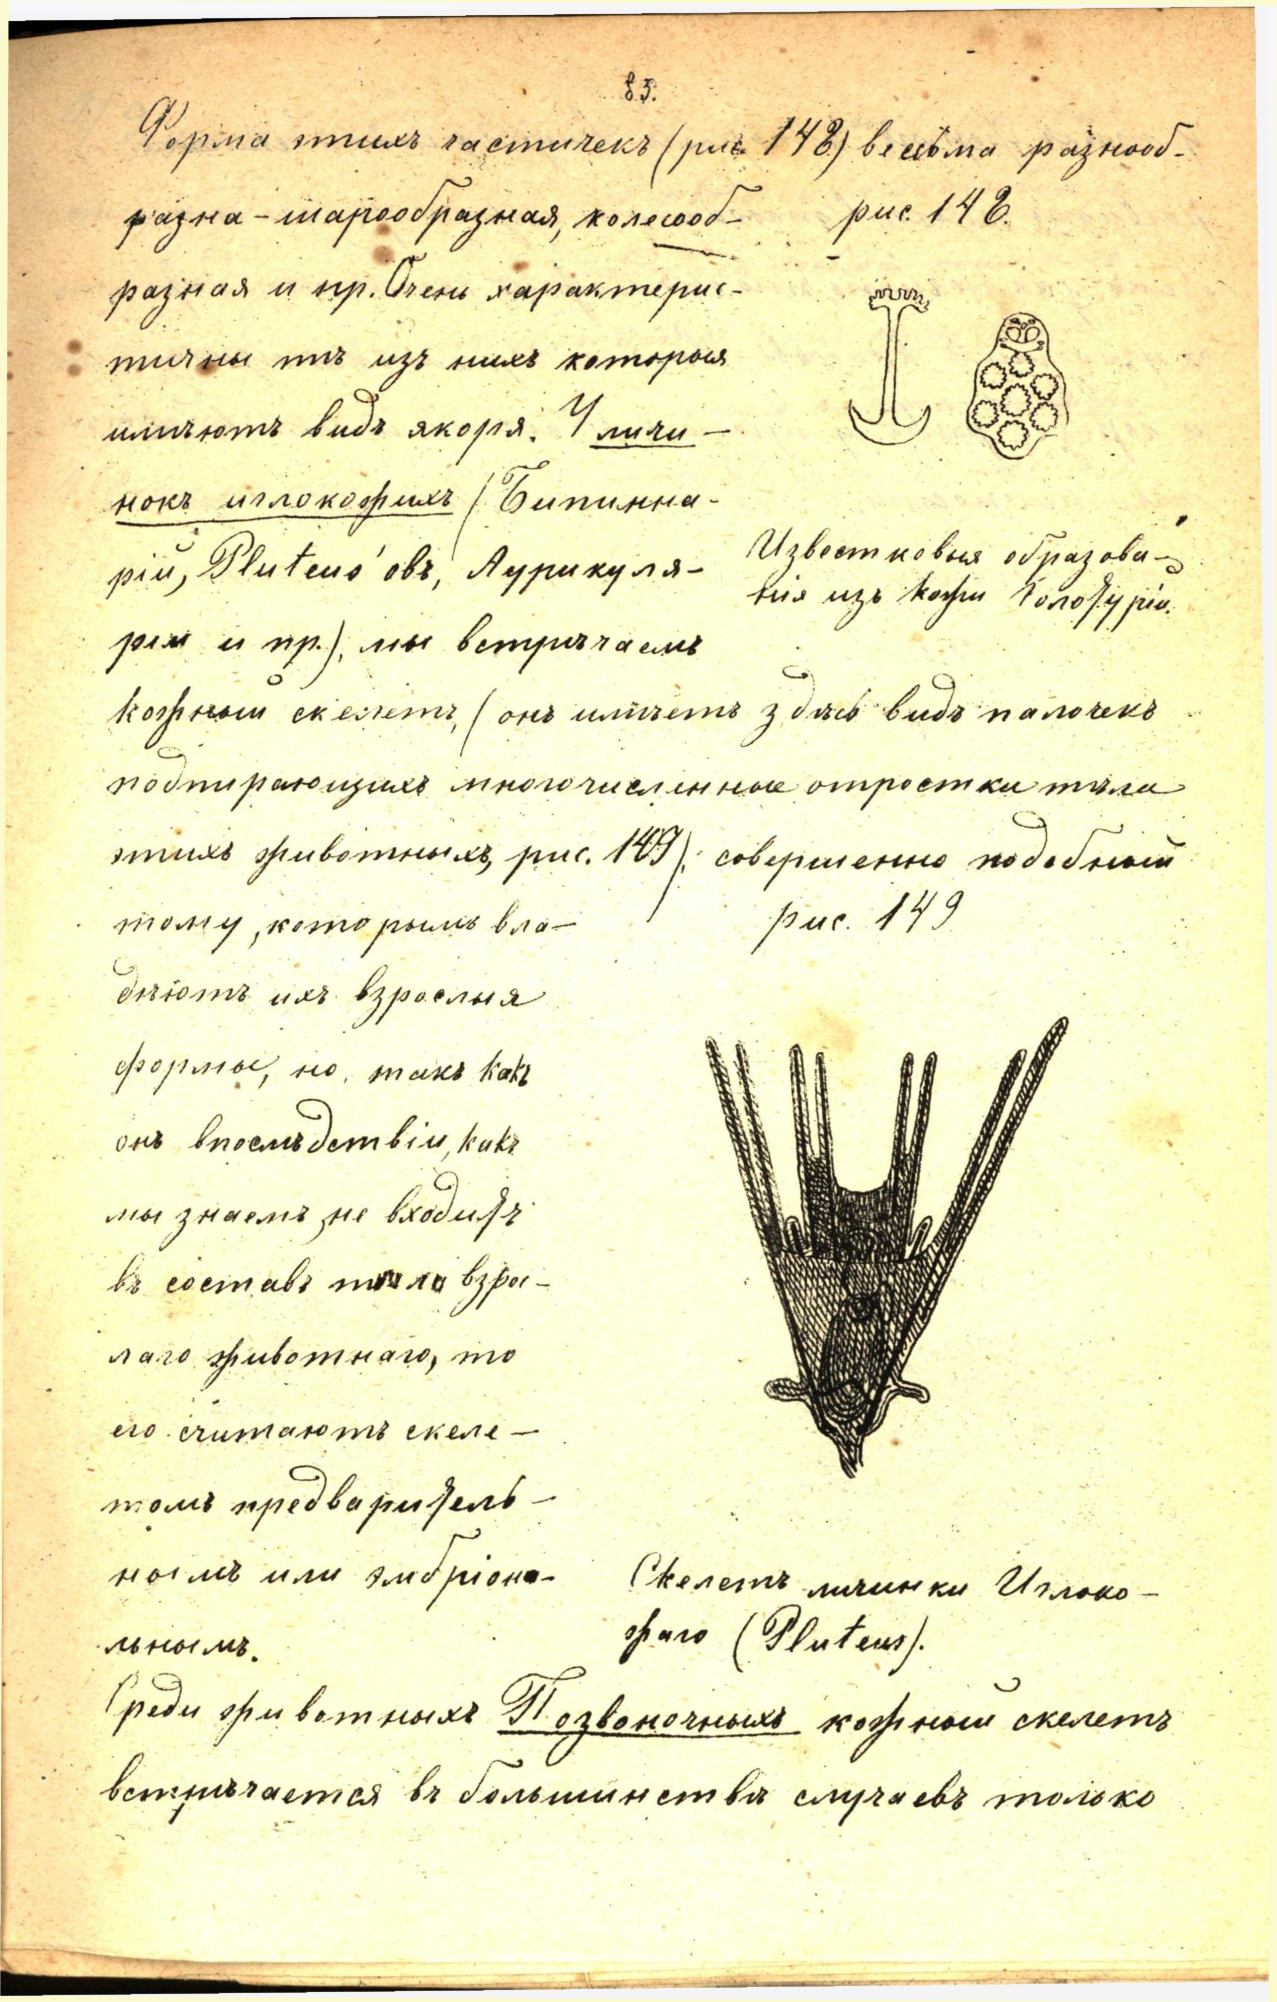 83.
Форма этихъ частичекъ (рис. 148) весьма разнооб-
разна – шарообразная, колесооб-
разная и пр. Очень характерис-
тичны тѣ изъ нихъ которыя
имѣютъ видъ якоря. У личи-
нокъ иглокожихъ (Бипинна-
рій, Pluteus'овъ, Аурикуля-
рія и пр.), мы встрѣчаемъ
рис. 148.
Известковыя образова-
нія изъ кожи Голотурій.
кожный скелетъ, (онъ имѣетъ здѣсь видъ палочекъ
подпирающихъ многочисленные отростки тѣла
этихъ животныхъ, рис. 149), совершенно подобный
тому, которымъ вла-
дѣютъ ихъ взрослыя
формы, но, такъ какъ
онъ впослѣдствіи, какъ
мы знаемъ, не входитъ
въ составъ тѣла взрос-
лаго животнаго, то
его считаютъ скеле-
томъ предваритель-
нымъ или эмбріона-
льнымъ.
рис. 149
Скелетъ личинки Иглоко-
жаго (Pluteus).
Среди животныхъ Позвоночныхъ кожный скелетъ
встрѣчается въ большинствѣ случаевъ только